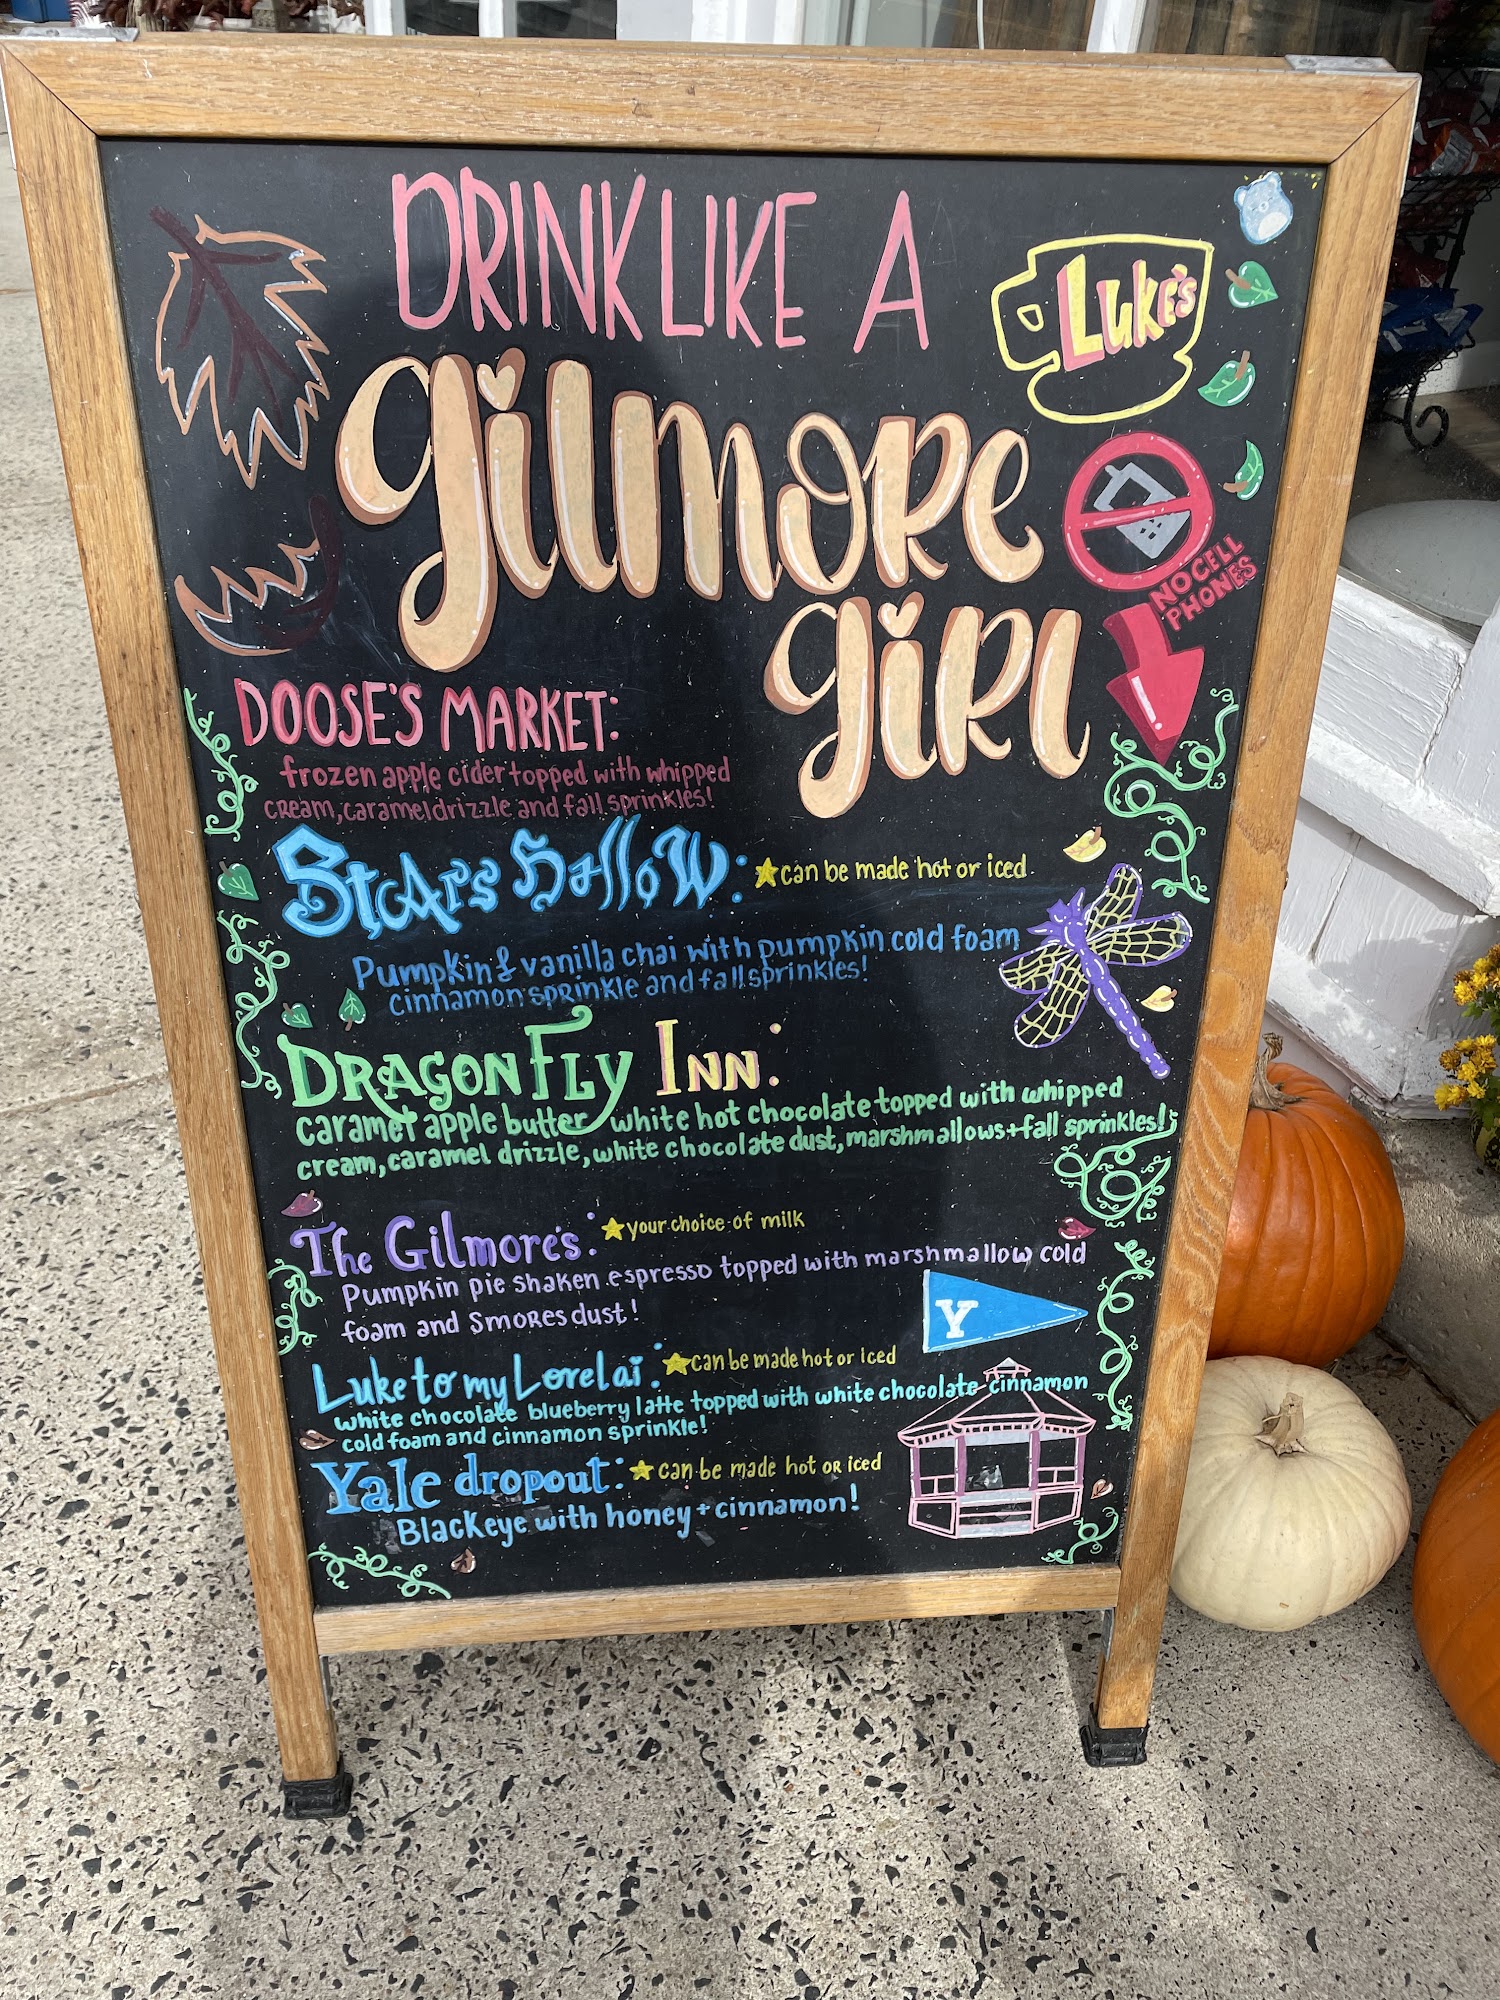 DRINK LIKE A
gilmore
girl
LUKE'S
NO CELL
PHONES
DOOSE'S MARKET:
frozen apple cider topped with whipped
cream, carameldrizzle and fall sprinkles!
Stars Hollow: can be made hot or iced
Pumpkin & vanilla chai with pumpkin cold foam
cinnamon sprinkle and fall sprinkles!
DRAGONFLY INN:
caramel apple butter white hot chocolate topped with whipped
cream, caramel drizzle, white chocolate dust, marshmallows + fall sprinkles!
The Gilmore's: your choice of milk
Pumpkin pie shaken espresso topped with marshmallow cold
foam and Smores dust!
Y
Luke to my Lorelai: can be made hot or iced
white chocolate blueberry latte topped with white chocolate cinnamon
cold foam and cinnamon sprinkle!
Yale dropout: can be made hot or iced
Blackeye with honey + cinnamon!